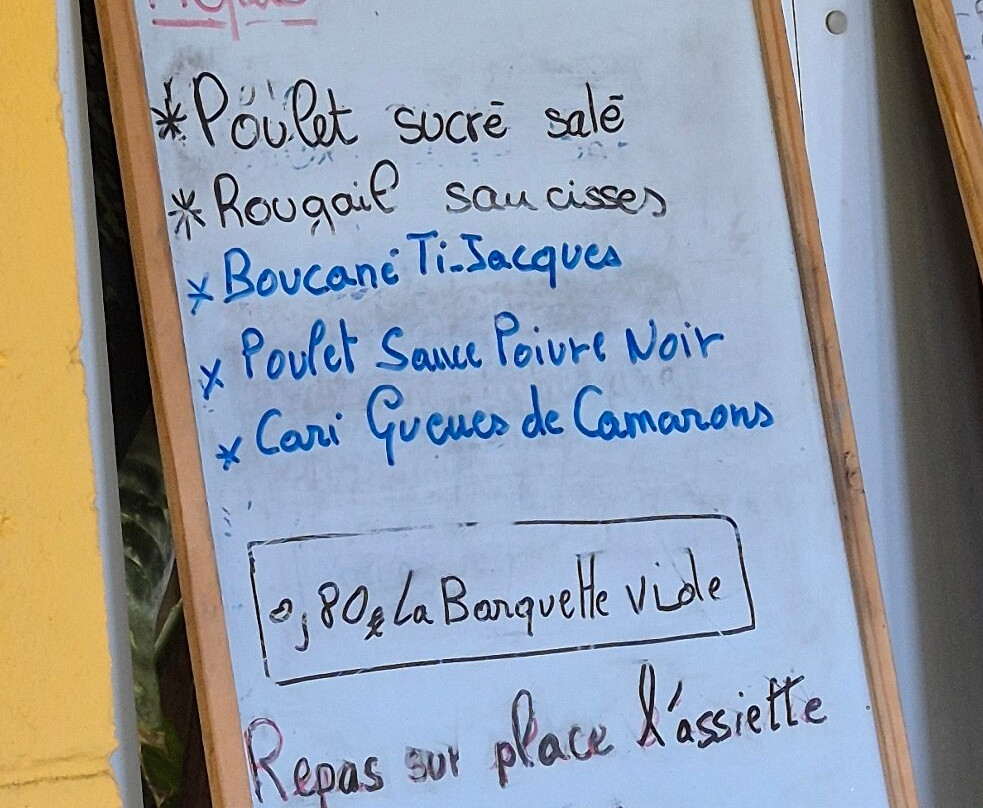 * Poulet sucré salé
* Rougail saucisses
* Boucané Ti-Jacques
* Poulet Sauce Poivre Noir
* Cari Gueues de Camarons
0,80€ La Barquette vide
Repas sur place l'assiette